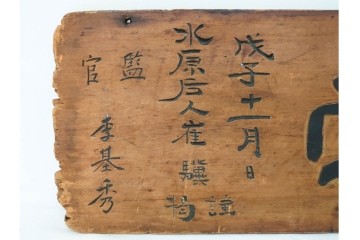 戊子十一月日
水原后人崔驥謹揭
監官 李基秀